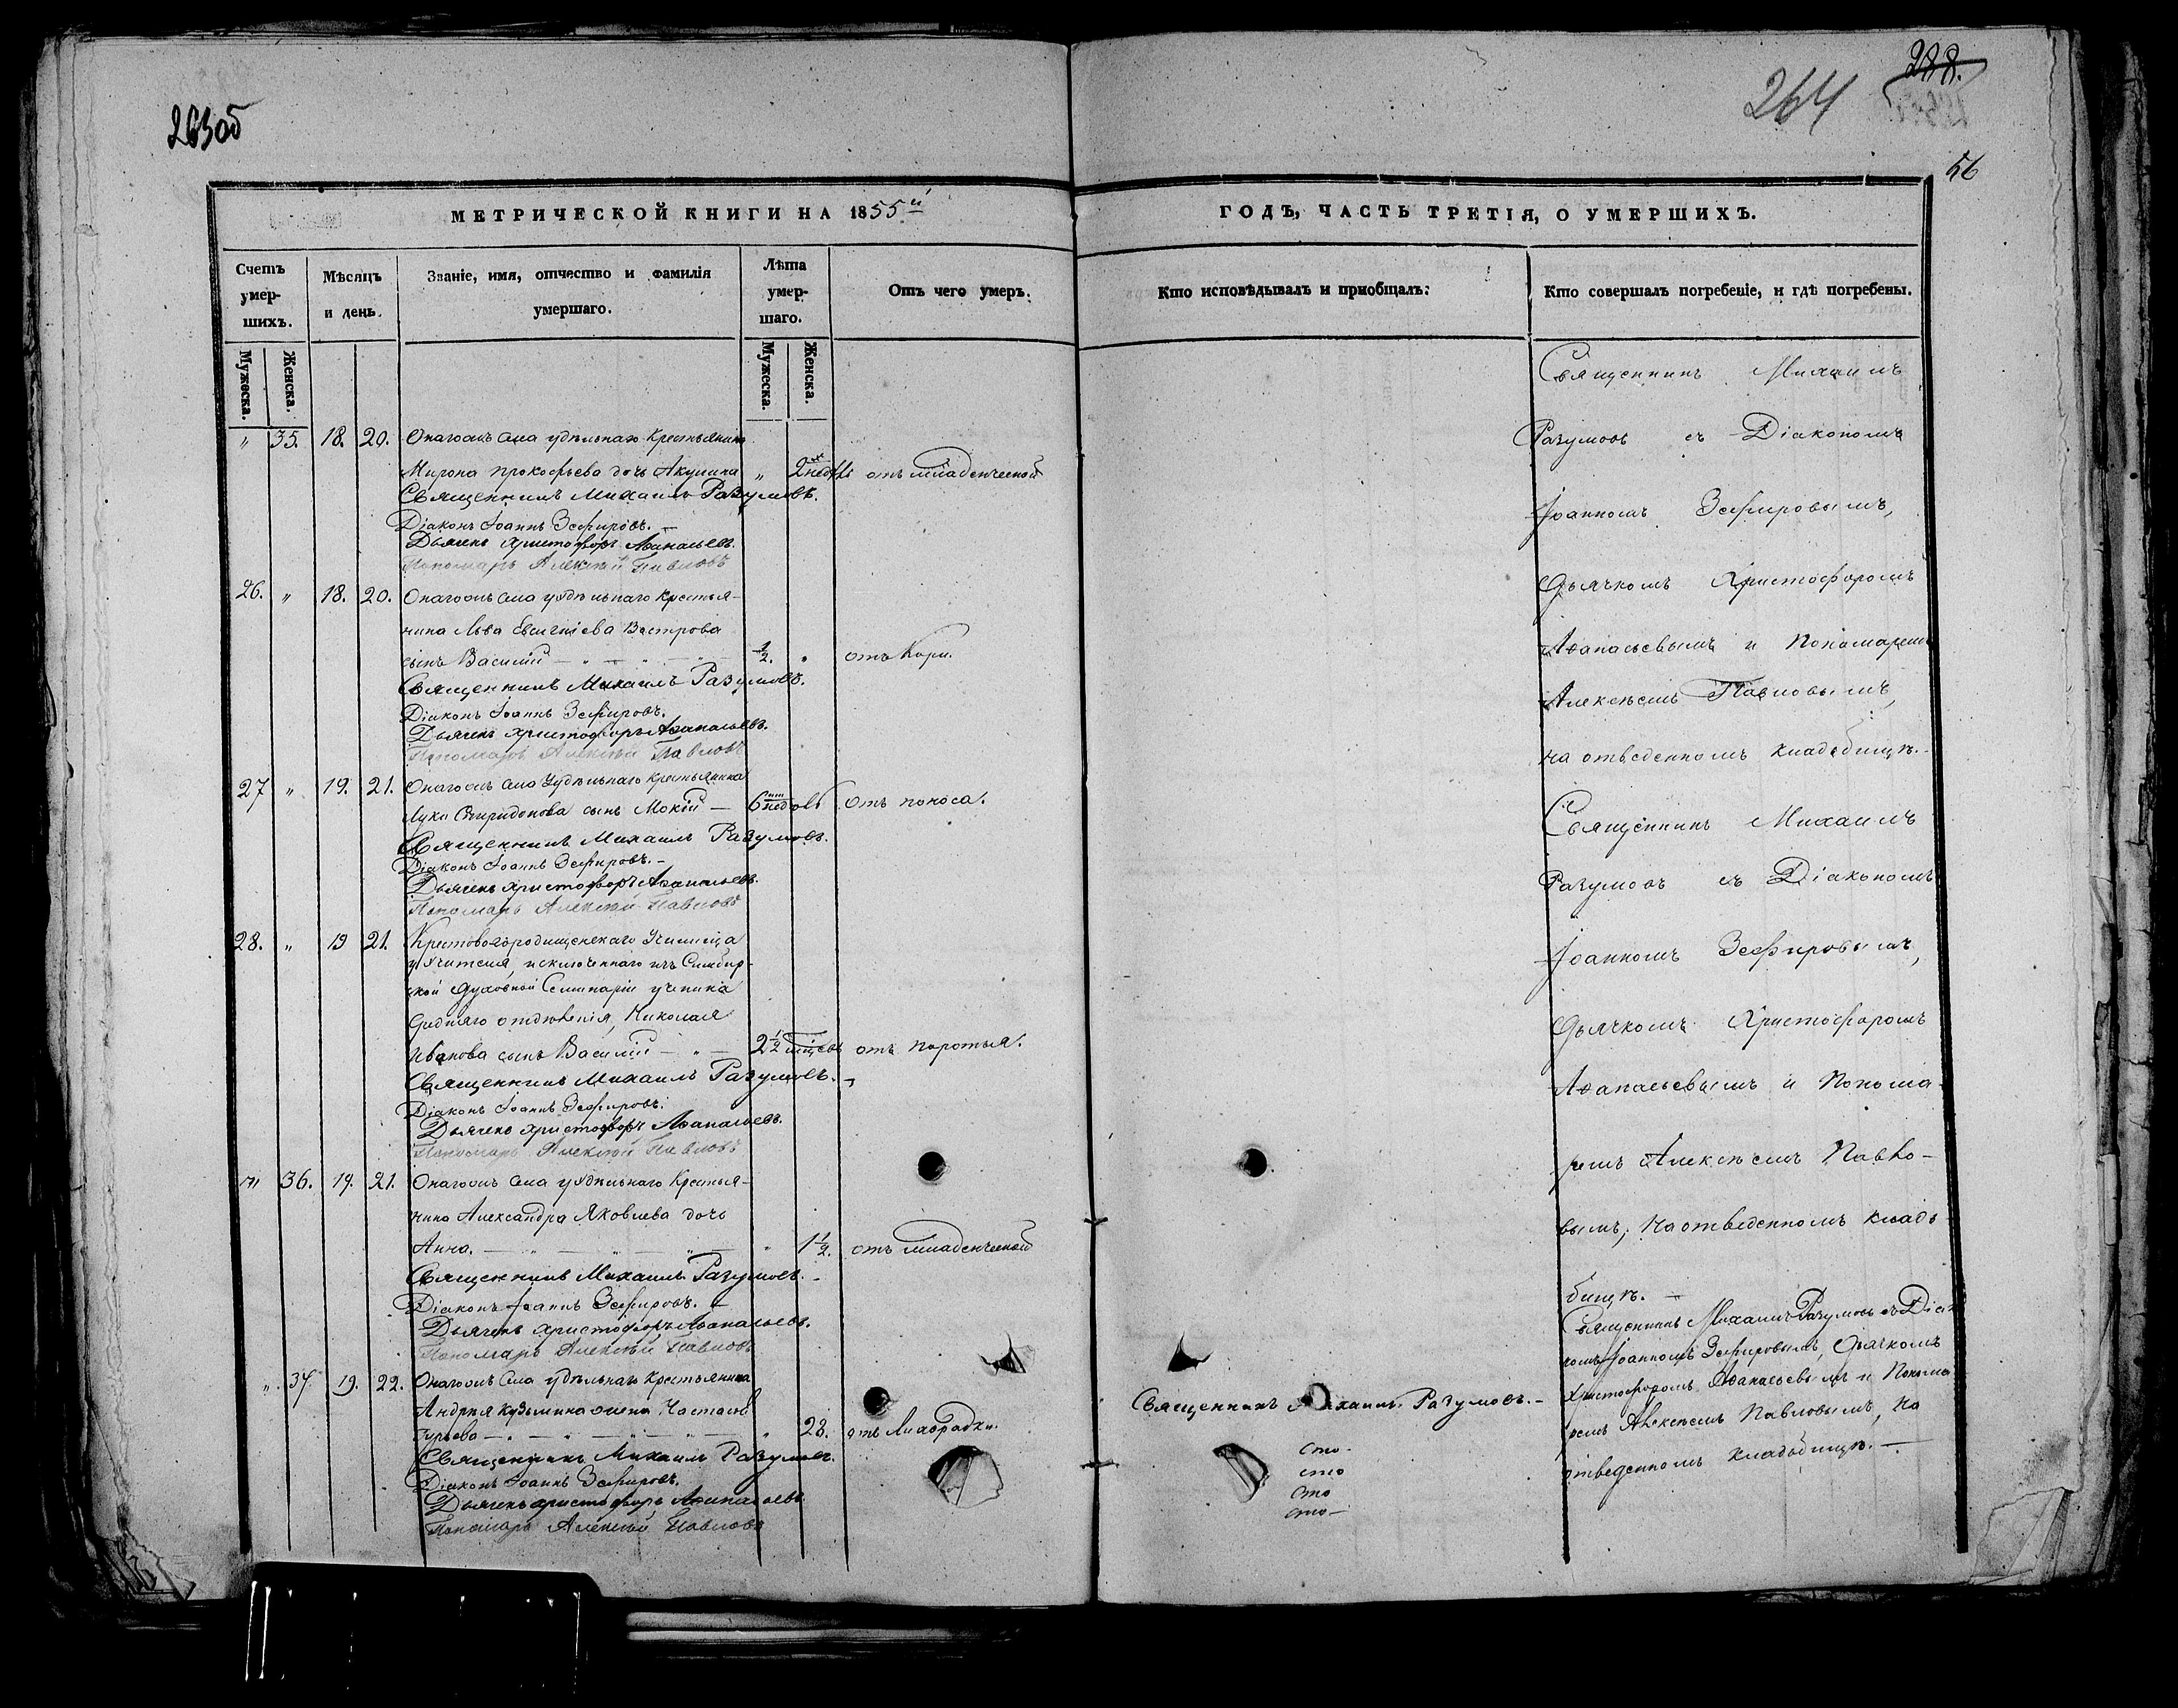 263об
264
288.
56
МЕТРИЧЕСКОЙ КНИГИ НА 1855й
Счетъ умер- шихъ.
Мѣсяцъ и день.
Званіе, имя, отчество и фамилія умершаго.
Лѣта умер- шаго.
Отъ чего умеръ.
Мужеска.
Женска.
Мужеска.
Женска.
" 35. 18. 20. Онагожъ села удѣльнаго крестьянина
Мирона Прокофьева дочь Акулина " 2 недѣль отъ младенческой
Священникъ Михаилъ Разумовъ.
Діаконъ Іоаннъ Зефировъ. —
Дьячекъ Христофоръ Аѳанасьевъ.
Пономарь Алексѣй Павловъ
26. " 18. 20. Онагожъ села удѣльнаго крестья-
нина Льва Евсигніева Вострова
сынъ Василій — " — " — 1/2. " отъ кори.
Священникъ Михаилъ Разумовъ.
Діаконъ Іоаннъ Зефировъ.
Дьячекъ Христофоръ Аѳанасьевъ.
Пономарь Алексѣй Павловъ
27 " 19. 21. Онагожъ села Удѣльнаго крестьянина
Луки Спиридонова сынъ Мокій — 6 недѣль отъ поноса.
Священникъ Михаилъ Разумовъ.
Діаконъ Іоаннъ Зефировъ. —
Дьячекъ Христофоръ Аѳанасьевъ.
Пономарь Алексѣй Павловъ
28. " 19 21. Крестовогородищенскаго Училища
учителя, исключеннаго изъ Симбир-
ской Духовной Семинаріи ученика
Средняго отдѣленія, Николая
Иванова сынъ Василій — " — 2 1/2 мѣсяц отъ
Священникъ Михаилъ Разумовъ. —
Діаконъ Іоаннъ Зефировъ.
Дьячекъ Христофоръ Аѳанасьевъ.
Пономарь Алексѣй Павловъ
" 36. 19. 21. Онагожъ села удѣльнаго крестья-
нина Александра Яковлева дочь
Анна. — " — " — " — " 1 1/2. отъ младенческой
Священникъ Михаилъ Разумовъ. —
Діаконъ Іоаннъ Зефировъ. —
Дьячекъ Христофоръ Аѳанасьевъ.
Пономарь Алексѣй Павловъ
" 37. 19. 22. Онагожъ села удѣльнаго крестьянина
Андрея Кузьмина жена Настасья
Гурьева — " — " — " — " 23. отъ лихорадки.
Священникъ Михаилъ Разумовъ.
Діаконъ Іоаннъ Зефировъ.
Дьячекъ Христофоръ Аѳанасьевъ
Пономарь Алексѣй Павловъ
ГОДЪ, ЧАСТЬ ТРЕТІЯ, О УМЕРШИХЪ.
Кто исповѣдывалъ и пріобщалъ.
Кто совершалъ погребеніе, и гдѣ погребены.
Священникъ Михаилъ
Разумовъ съ Діакономъ
Іоанномъ Зефировымъ,
Дьячкомъ Христофоромъ
Аѳанасьевымъ и Пономаремъ
Алексѣемъ Павловымъ,
на отведенномъ кладбищѣ. —
Священникъ Михаилъ
Разумовъ съ Діакономъ
Іоанномъ Зефировымъ,
Дьячкомъ Христофоромъ
Аѳанасьевымъ и Понома-
ремъ Алексѣемъ Павло-
вымъ, на отведенномъ клад-
бищѣ. —
Священникъ Михаилъ Разумовъ. —
Священникъ Михаилъ Разумовъ съ Діако
номъ Іоанномъ Зефировымъ, Дьячкомъ
Христофоромъ Аѳанасьевымъ и Понома
ремъ Алексѣемъ Павловымъ, на
отведенномъ кладбищѣ. —